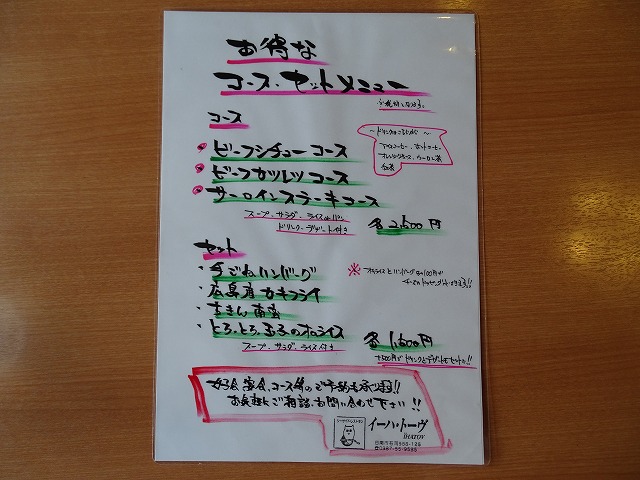 お得な
コース・セットメニュー
コース
〜ドリンクは
アイスコーヒー、ホットコーヒー
オレンジジュース、ウーロン茶
紅茶
・ビーフシチューコース
・ビーフカツレツコース
・サーロインステーキコース
スープ・サラダ・ライスorパン
ドリンク・デザート付き
各2,500円
セット
・手ごねハンバーグ
・広島産カキフライ
・チキン南蛮
・とろ、とろ、玉子のオムライス
スープ・サラダ・ライス付き
※オムライスとハンバーグ
各1,600円
+500円でドリンクとデザートもセット!!
宴会、コース等のご予約も承ります!!
お気軽にご相談、お問い合わせ下さい!!
イーハ・トーヴ
IHATOV